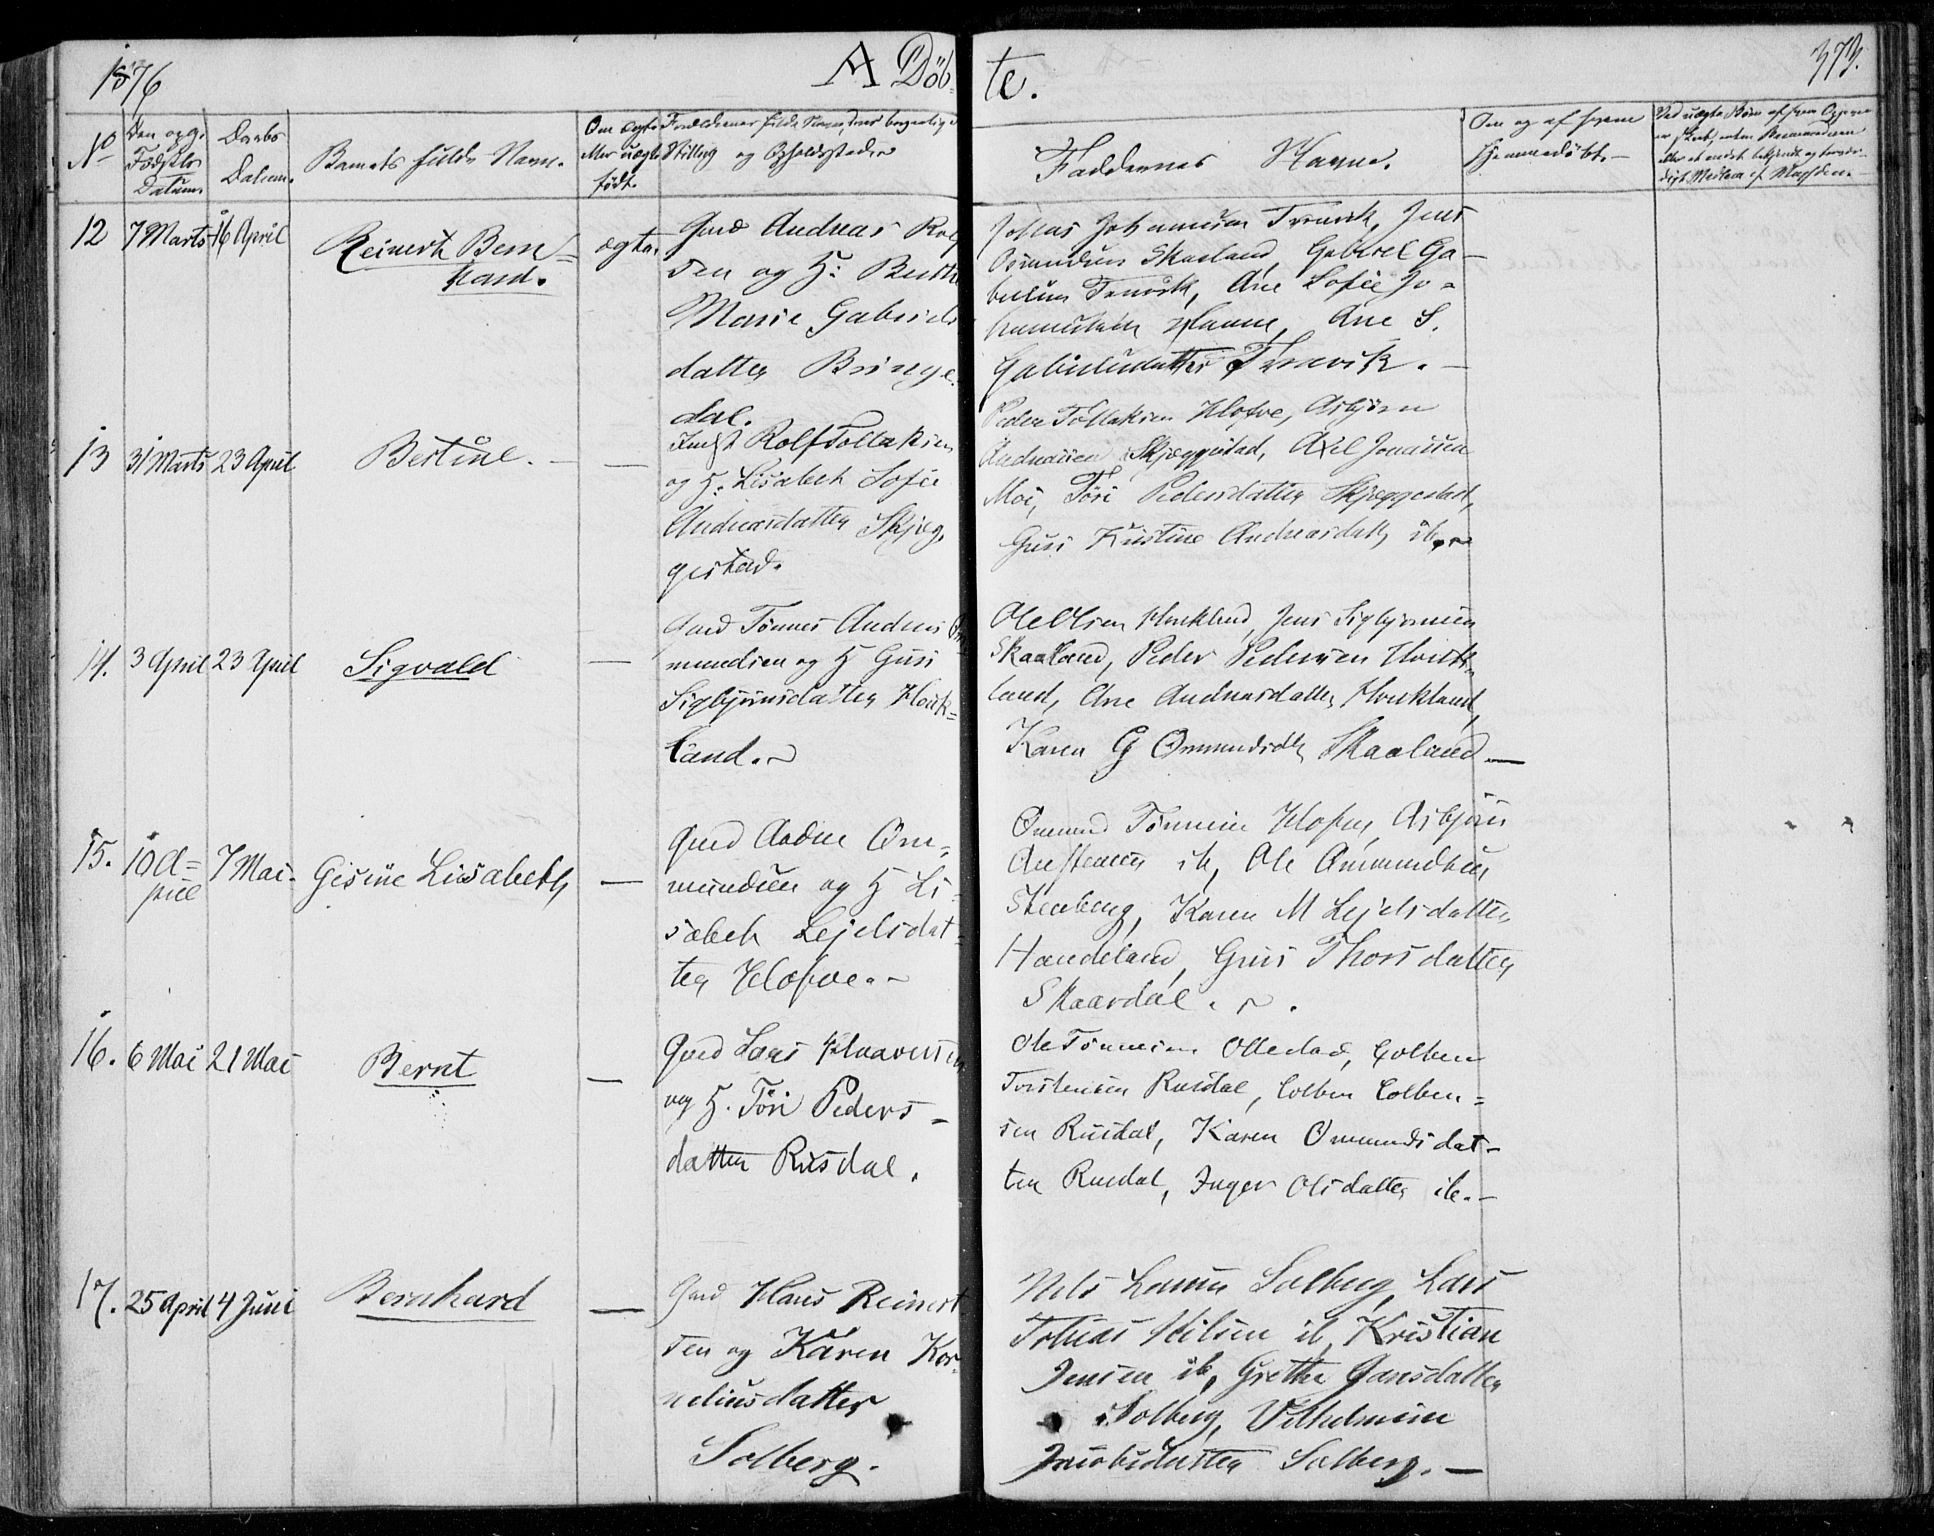 1876
A Döb-
te.
373.
No
Den og
Fødsels
Datum.
Daabs
Datum.
Barnets fulde Navn.
Om ægte
eller uægte
født.
Forældrenes fulde Navne, deres borgerlige
Stilling og Opholdssteder
Faddernes Navne.
Om og af hvem
hjemmedøbt.
12
7 Marts
16 April
Reinert Bern-
hard.
ægte.
Gmd Andreas Rolf
sen og H: Berthe
Marie Gabriels
datter Bringe
dal.
Tobias Johannesen Trenvik, Jens
Osmundsen Skaaland, Gabriel Ga-
brielsen Trenvik, Ane Sofie Jo-
Ane S.
Gabrielsdatter Trenvik.
13
31 Marts
23 April
Bertine.
—
Rolf Tollaksen
og H. Lisabeth Sofie
Andreasdatter Skjæg-
gestad.
Peder Tollaksen Klofve, Asbjørn
Andreasen Skjæggestad, Axel Jonassen
Moi, Töri Pedersdatter Skjæggestad,
Gusi Kristine Andreasdatt ib.
14.
3 April
23 April
Sigvald
—
Gmd Tönnes Andreas Om
mundsen og H Gusi
Sigbjörnsdatter Hauk-
land.
Ole Olsen Haukland, Jens Sigbjörnsen
Skaaland, Peder Pedersen Hauk-
land, Ane Andreasdatter Haukland,
Karen G Ommundsdtr Skaaland —
15.
10 A-
pril
7 Mai.
Gesine Lisabeth
—
Gmd Aadne Om-
mundsen og H Li-
sabeth Lejelsdat-
ter Klofve.
Ommund Tönnesen Klofve, Asbjörn
ib, Ole Ommundsen
Stenberg, Karen M Lejelsdatter
Handeland, Gusi Thorsdatter
Skaardal.
16.
6 Mai
21 Mai
Bernt
—
Gmd Lars
og H. Töri Peders-
datter Rusdal.
Ole Tönnesen Ollestad, Colben
Torstensen Rusdal, Colben Colben-
sen Rusdal, Karen Ommundsdat-
ter Rusdal, Inger Olsdatter ib. —
17.
25 April
4 Juni
Bernhard
—
Gmd Hans Reinert
sen og Karen Kor-
neliusdatter
Solberg.
Nils Larsen Solberg, Lars
Tobias Nilsen ib, Kristian
Jensen ib, Grethe Hansdatter
Solberg, Vilhelmine
Jacobsdatter Solberg. —